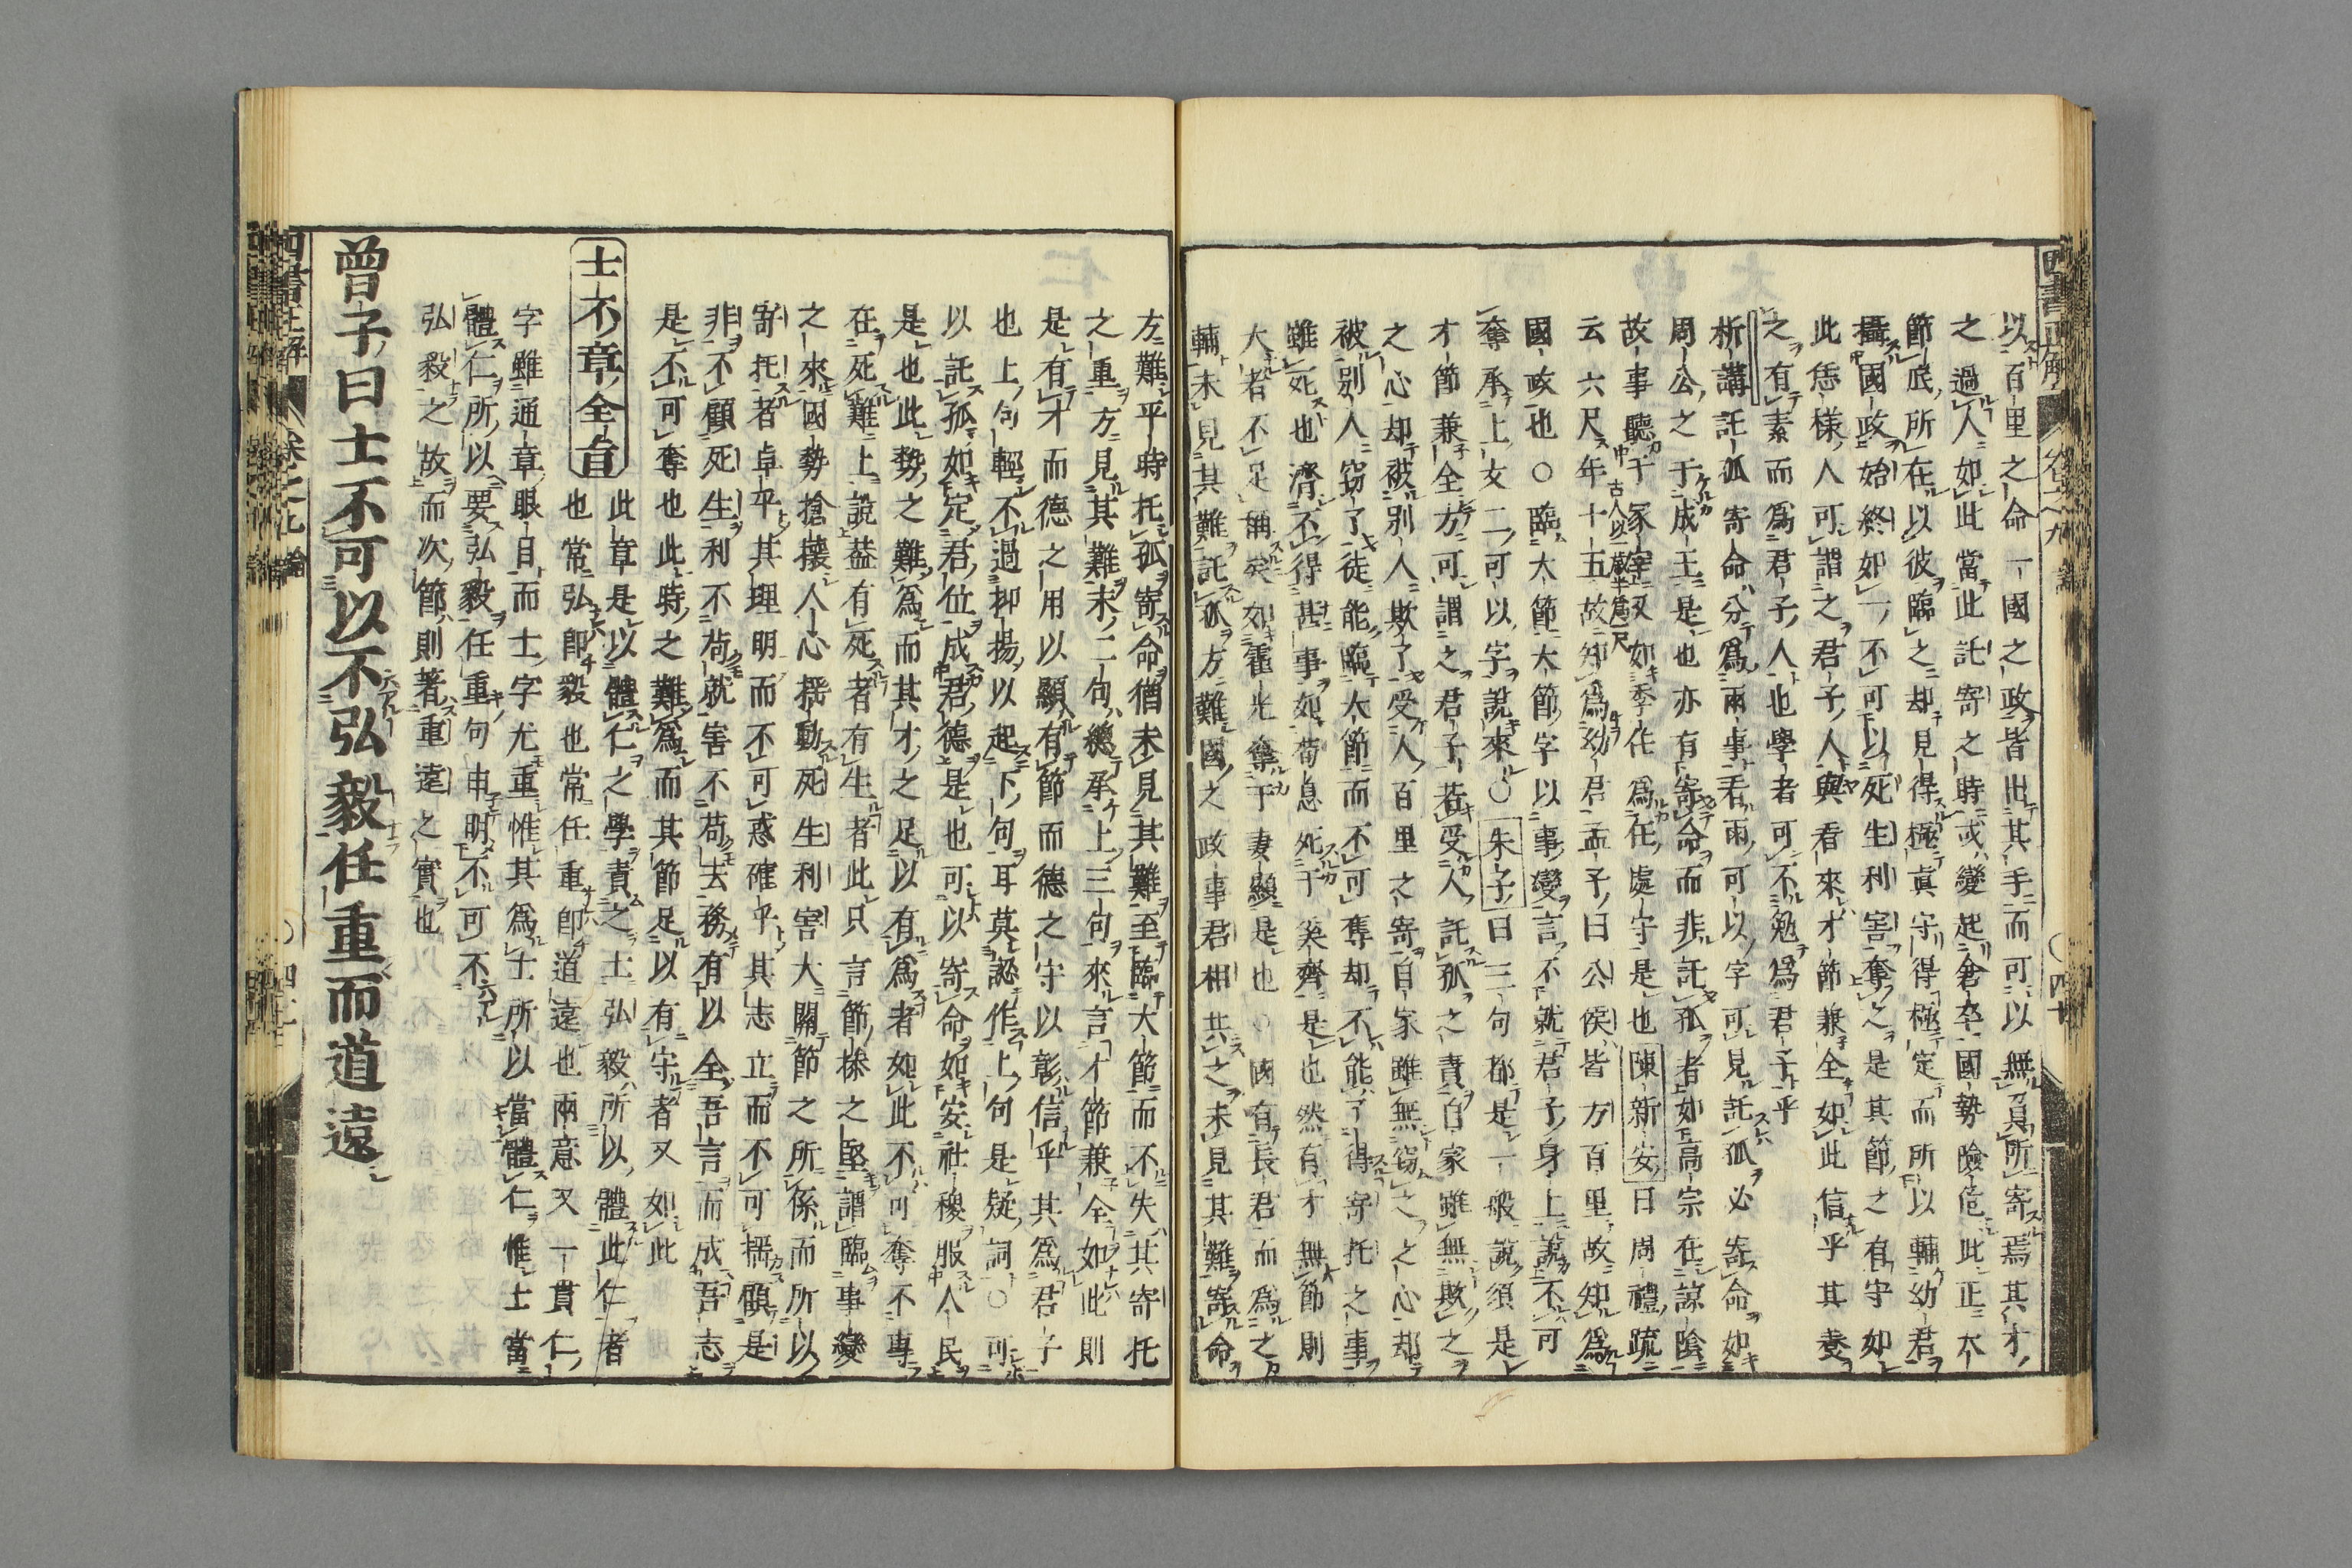 以百里之命一國之政皆出其手而可以無負所寄焉其才
之過人如此當此託寄之時或變起倉卒國勢險危此正大
節底所在以彼臨之却見得極眞守得極定而所以輔幼君
攝國政始終如一不可以死生利害奪之是其節之有守如
此恁樣人可謂之君子人與看來才節兼全如此信乎其養
之有素而爲君子人也學者可不勉爲君子乎
析講託孤寄命分爲兩事看兩可以字可見託孤必寄命如
周公之于成王是也亦有寄命而非託孤者如高宗在諒陰
故事聽于冢宰又如季任爲任處守是也陳新安曰周禮疏
云六尺年十五古人以二歲半爲一尺故知爲幼君孟子曰公侯皆方百里故知爲
國政也○臨大節大節字以事變言不就君子身上說不可
奪承上文二可以字說來○朱子曰三句都是一般說須是
才節兼全方可謂之君子若受人託孤之責自家雖無欺之
之心却被別人欺了受人百里之寄自家雖無竊之之心却
被別人竊了徒能臨大節而不可奪却不能了得寄托之事
雖死也濟不得甚事如荀息死于奚齊是也然有才無節則
大者不足稱矣如霍光奪于妻顯是也○國有長君而爲之
輔未見其難託孤方難國之政事君相共之未見其難寄命
方難平時托孤寄命猶未見其難至臨大節而不失其寄托
之重方見其難末二句總承上三句來言才節兼全如此則
是有才而德之用以顯有節而德之守以彰信乎其爲君子
也上句輕不過抑揚以起下句耳莫認作上句是疑詞○可
以託孤如定君位成君德是也可以寄命如安社稷服人民
是也此勢之難爲而其才之足以有爲者如此不可奪不專
在死難上說葢有死者有生者此只言節操之堅謂臨事變
之來國勢搶攘人心搖動死生利害大關節之所係而所以
寄托者卓乎其理明而不可惑確乎其志立而不可搖顧是
非不顧死生利不苟就害不苟去務有以全吾言而成吾志
是不可奪也此時之難爲而其節足以有守者又如此
士不章全旨
此章是以體仁之學責之士弘毅所以體此仁者
也常弘卽毅也常任重卽道遠也兩意又一貫仁
字雖通章眼目而士字尤重惟其爲士所以當體仁惟士當
體仁所以要弘毅任重句申明不可不
弘毅之故而次節則著重遠之實也
曾子曰士不可以不弘毅任重而道遠